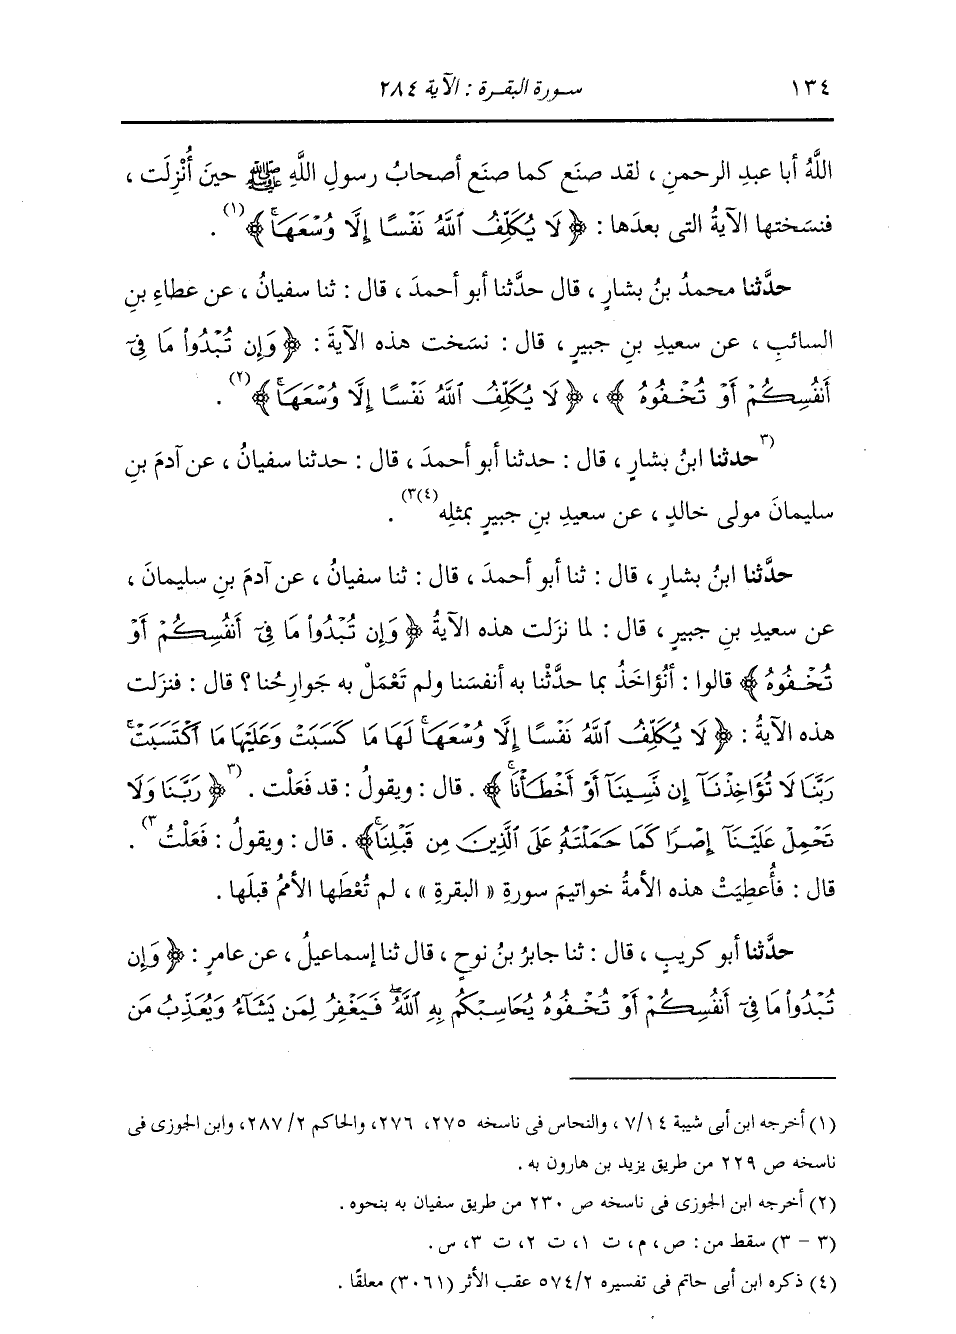 ١٣٤ سورة البقرة : الآية ٢٨٤
اللَّهُ أبا عبدِ الرحمنِ ، لقد صنَع كما صنَع أصحابُ رسولِ اللَّهِ ﷺ حينَ أُنْزِلَت ،
فنسَختها الآيةُ التى بعدَها : ﴿ لَا يُكَلِّفُ ٱللَّهُ نَفْسًا إِلَّا وُسْعَهَاۚ ﴾(١) .
حدَّثنا محمدُ بنُ بشارٍ ، قال حدَّثنا أبو أحمدَ ، قال : ثنا سفيانُ ، عن عطاءِ بنِ
السائبِ ، عن سعيدِ بنِ جبيرٍ ، قال : نسَخت هذه الآيةَ : ﴿ وَإِن تُبْدُوا۟ مَا فِىٓ
أَنفُسِكُمْ أَوْ تُخْفُوهُ ﴾ ، ﴿ لَا يُكَلِّفُ ٱللَّهُ نَفْسًا إِلَّا وُسْعَهَاۚ ﴾(٢) .
(٣حدثنا ابنُ بشارٍ ، قال : حدثنا أبو أحمدَ ، قال : حدثنا سفيانُ ، عن آدمَ بنِ
سليمانَ مولى خالدٍ ، عن سعيدِ بنِ جبيرٍ بمثلِه(٤)٣) .
حدَّثنا ابنُ بشارٍ ، قال : ثنا أبو أحمدَ ، قال : ثنا سفيانُ ، عن آدمَ بنِ سليمانَ ،
عن سعيدِ بنِ جبيرٍ ، قال : لما نزَلت هذه الآيةُ ﴿ وَإِن تُبْدُوا۟ مَا فِىٓ أَنفُسِكُمْ أَوْ
تُخْفُوهُ ﴾ قالوا : أنُؤاخَذُ بما حدَّثْنا به أنفسَنا ولم تَعْمَلْ به جَوارِحُنا ؟ قال : فنزلت
هذه الآيةُ : ﴿ لَا يُكَلِّفُ ٱللَّهُ نَفْسًا إِلَّا وُسْعَهَاۚ لَهَا مَا كَسَبَتْ وَعَلَيْهَا مَا ٱكْتَسَبَتْۗ
رَبَّنَا لَا تُؤَاخِذْنَآ إِن نَّسِينَآ أَوْ أَخْطَأْنَاۚ ﴾ . قال : ويقولُ : قد فعَلْت . (٣﴿ رَبَّنَا وَلَا
تَحْمِلْ عَلَيْنَآ إِصْرًا كَمَا حَمَلْتَهُۥ عَلَى ٱلَّذِينَ مِن قَبْلِنَاۚ ﴾ . قال : ويقولُ : فَعَلْتُ٣) .
قال : فأُعطِيَتْ هذه الأمةُ خواتيمَ سورةِ « البقرةِ » ، لم تُعْطَها الأممُ قبلَها .
حدَّثنا أبو كريبٍ ، قال : ثنا جابرُ بنُ نوحٍ ، قال ثنا إسماعيلُ ، عن عامرٍ : ﴿ وَإِن
تُبْدُوا۟ مَا فِىٓ أَنفُسِكُمْ أَوْ تُخْفُوهُ يُحَاسِبْكُم بِهِ ٱللَّهُۖ فَيَغْفِرُ لِمَن يَشَآءُ وَيُعَذِّبُ مَن
(١) أخرجه ابن أبى شيبة ٧/١٤ ، والنحاس فى ناسخه ٢٧٥، ٢٧٦، والحاكم ٢/ ٢٨٧، وابن الجوزى فى
ناسخه ص ٢٢٩ من طريق يزيد بن هارون به .
(٢) أخرجه ابن الجوزى فى ناسخه ص ٢٣٠ من طريق سفيان به بنحوه .
(٣ - ٣) سقط من : ص ، م ، ت ١، ت ٢، ت ٣، س .
(٤) ذكره ابن أبى حاتم فى تفسيره ٥٧٤/٢ عقب الأثر (٣٠٦١) معلقًا .